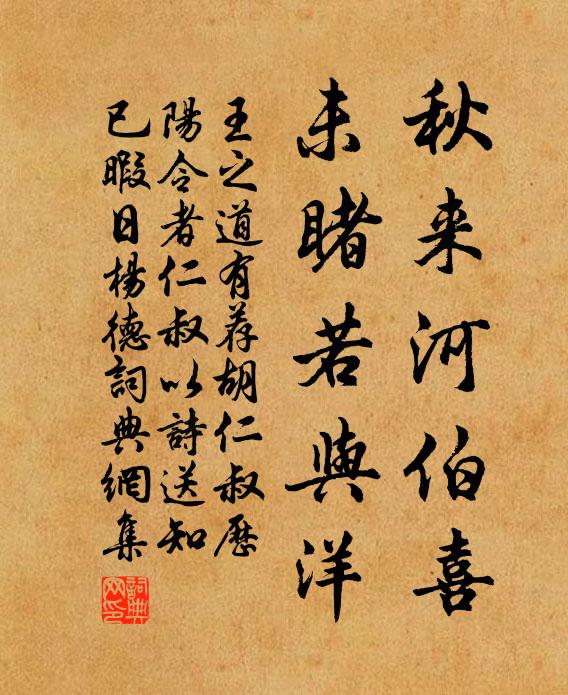 秋来河伯喜
未睹若與洋
王之道有荐胡仁叔歷
陽令者仁叔以詩送知
已暇日楊德詞典網集
詞典網印